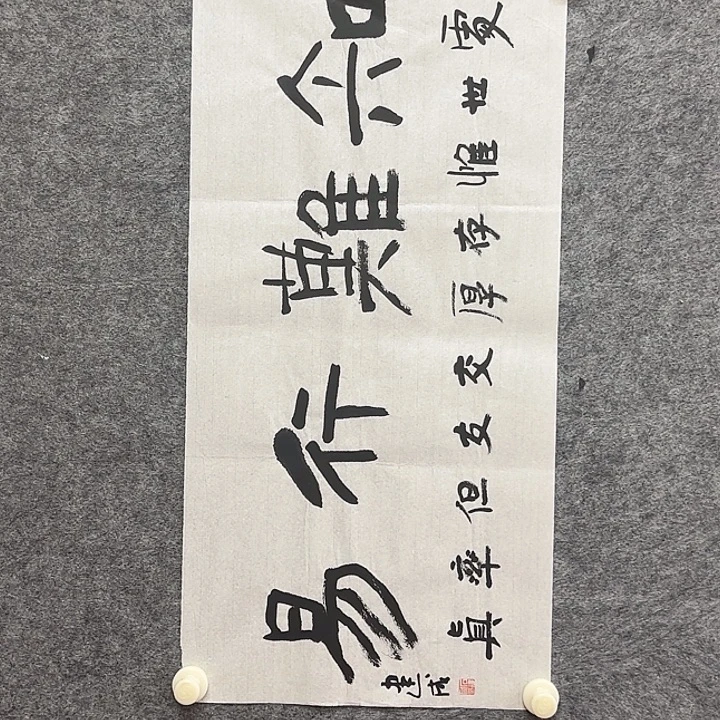 知難行易
處世惟存厚交友但率真